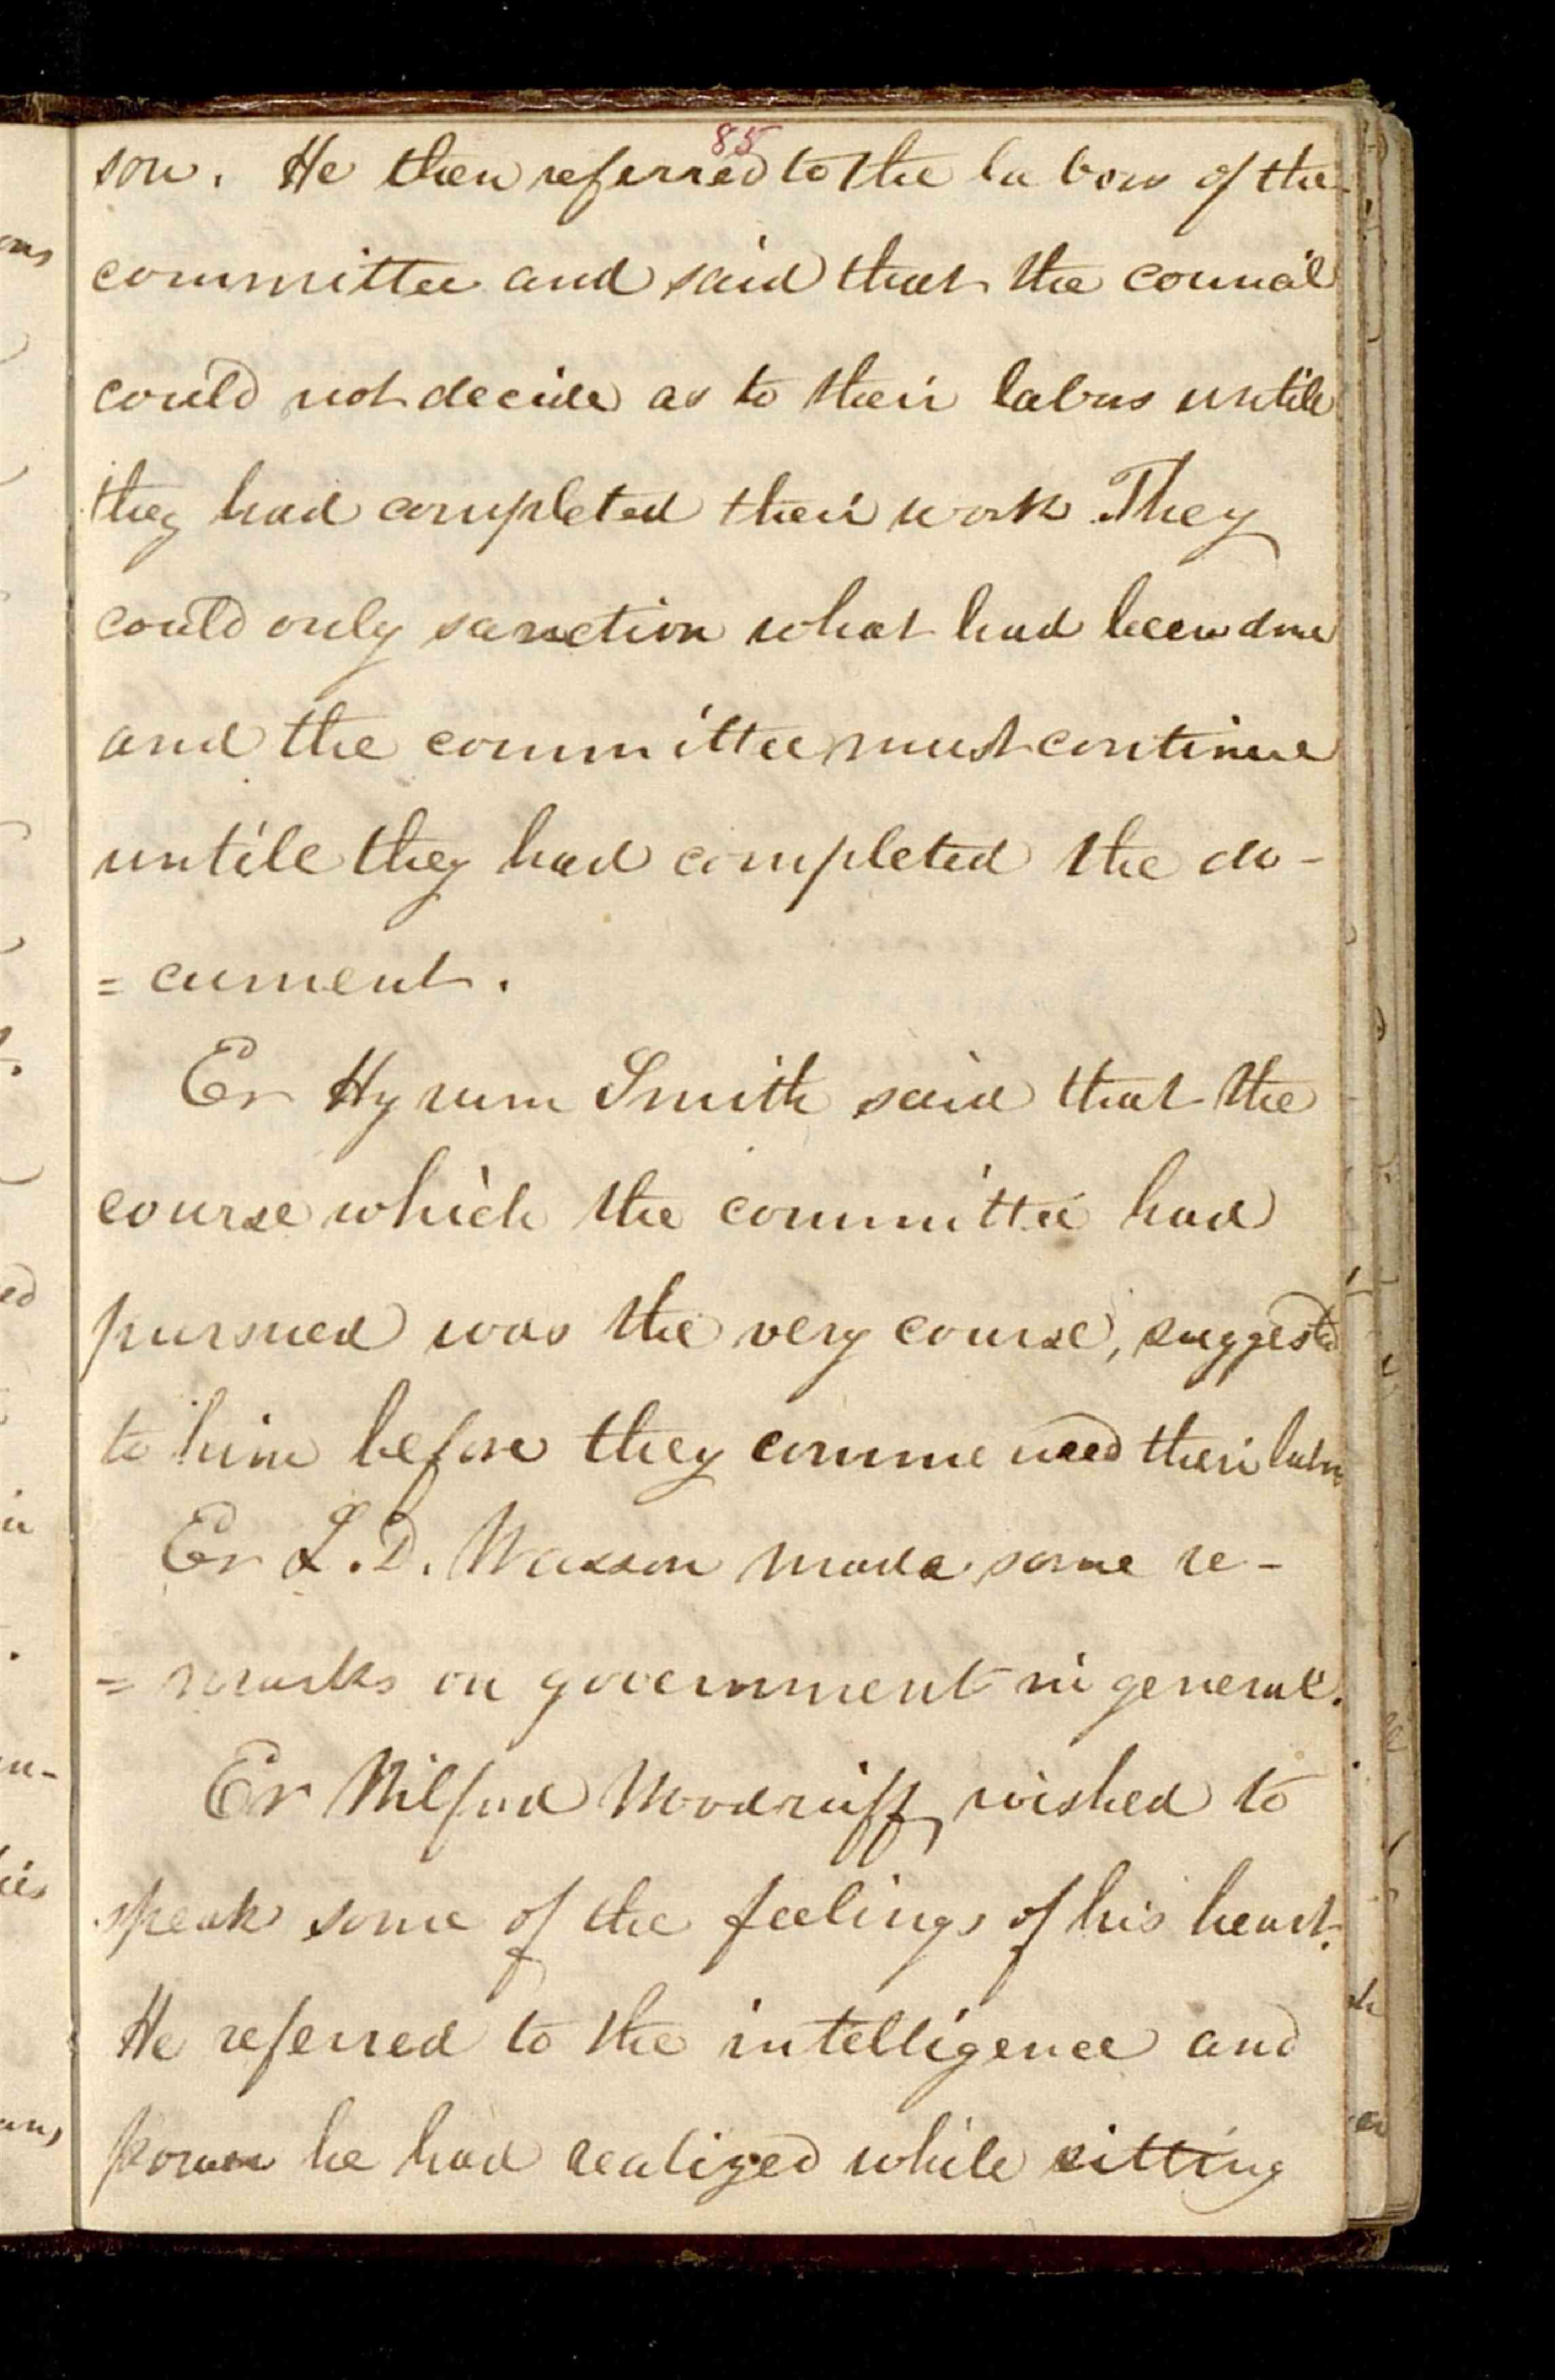 85
son. He then referred to the labors of the
committee and said that the council
could not decide as to their labors untill
they had completed their work. They
could only sanction what had been done
and the committee must continue
untile they had completed the do-
=cument.
Er Hyrum Smith said that the
course which the committee had
pursued was the very course, suggested
to him before they commenced their labors
Er L. D. Wasson made some re-
=marks on government in general.
Er Wilford Woodruff wished to
speak some of the feelings of his heart.
He referred to the intelligence and
power he had realized while sitting